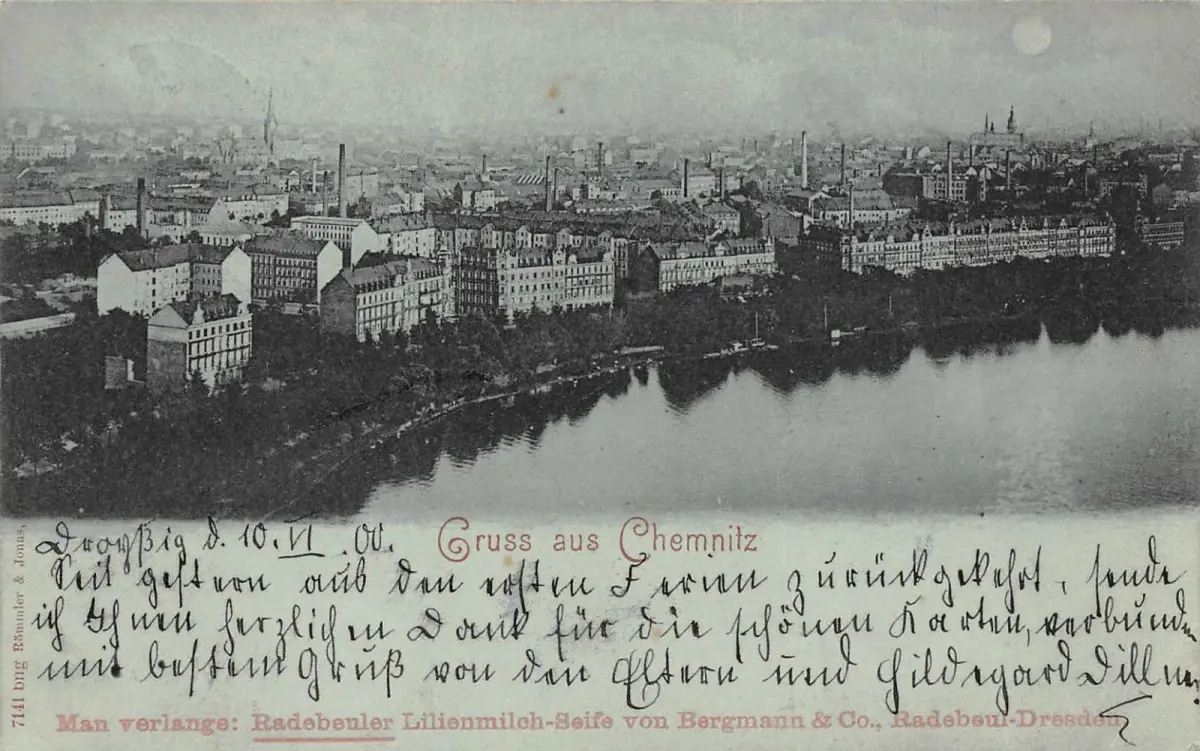 Droyßig d. 10. VI. 00.
Gruss aus Chemnitz
Seit gestern aus den ersten Ferien zurückgekehrt, sende
ich Ihnen herzlichen Dank für die schönen Karten, verbunden
mit bestem Gruß von den Eltern und Hildegard
Man verlange: Radebeuler Lilienmilch-Seife von Bergmann & Co., Radebeul-Dresden
7141 bng Römmler & Jonas,